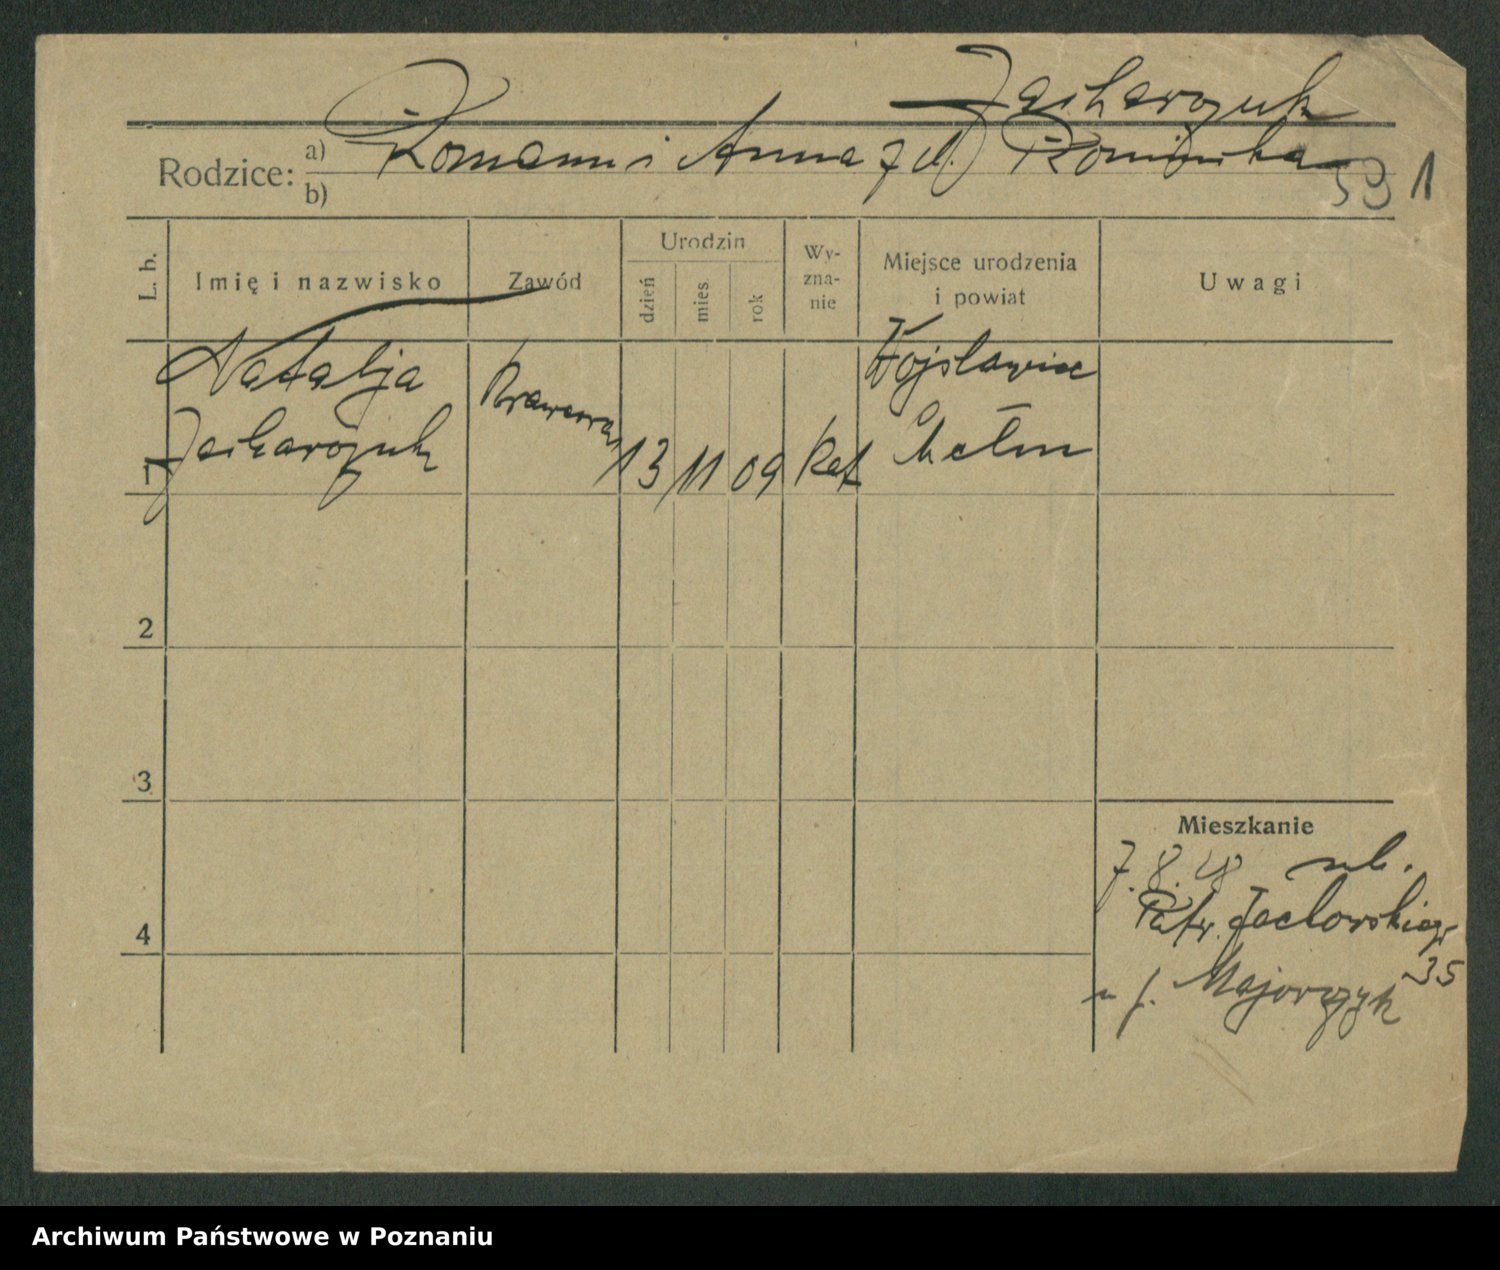 Zacharczuk
Rodzice: a) Roman i Anna z d.
b)
591
L. b. Imię i nazwisko Zawód Urodzin dzień mies. rok Wy-zna-nie Miejsce urodzenia i powiat Uwagi
Natalja Krawcowa Wojsławice
1 Zacharczuk 13 11 09 kat Chełm
2
3
Mieszkanie
7.8.28 ul.
4 Patr. Jackowskiego
35
u f. Majorczyk
Archiwum Państwowe w Poznaniu